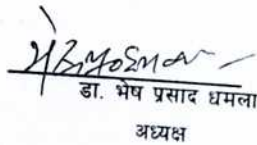 डा. भेष प्रसाद धमला
अध्यक्ष